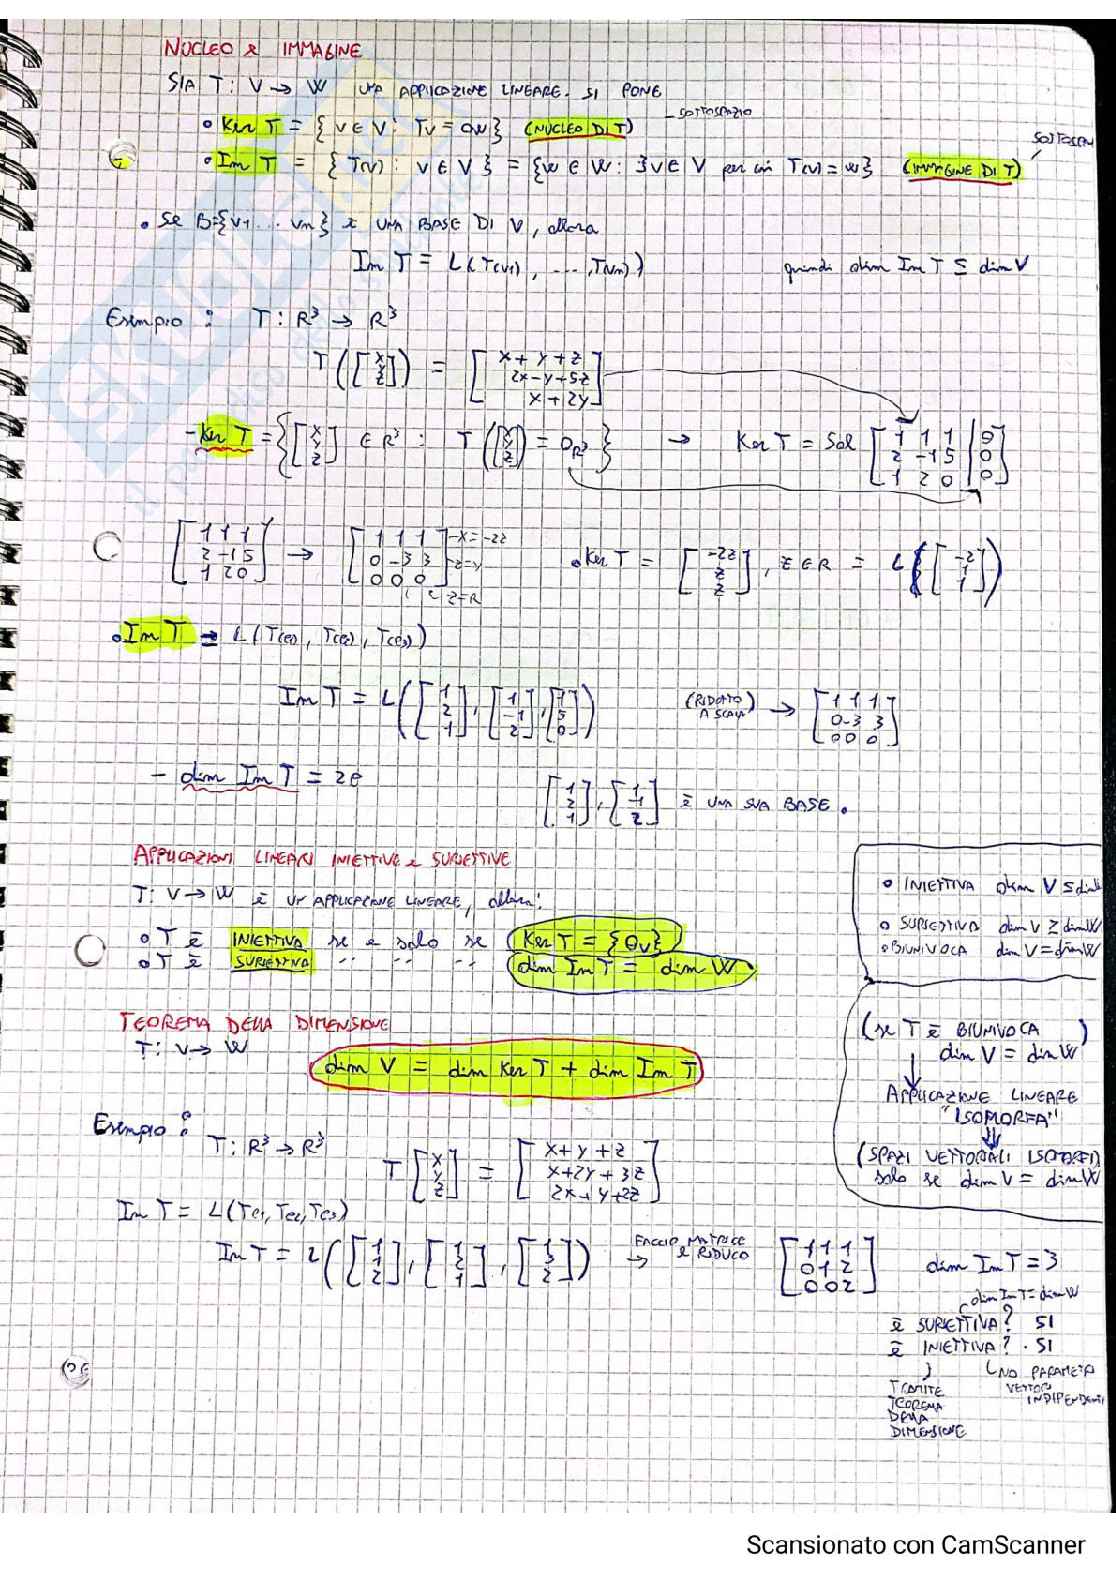 NUCLEO E IMMAGINE
SIA T: V → W UNA APPLICAZIONE LINEARE. SI PONE
• Ker T = { v ∈ V : Tv = 0w } (NUCLEO DI T) - SOTTOSPAZIO
• Im T = { T(v) : v ∈ V } = { w ∈ W : ∃ v ∈ V per cui T(v) = w } (IMMAGINE DI T)
• Se B={v1 ... vn} è UNA BASE DI V, allora
Im T = L(T(v1), ..., T(vn)) quindi dim Im T ≤ dim V
Esempio : T: R³ → R³
T([x y z]) = [x+y+z 2x-y+5z x+2y]
- Ker T = { [x y z] ∈ R³ : T([x y z]) = 0R³ } → Ker T = Sol [1 1 1 | 0 2 -1 5 | 0 1 2 0 | 0]
[1 1 1 2 -1 5 1 2 0] → [1 1 1 0 -3 3 0 0 0] -x = -2z -z=y z=R
• Ker T = [-2z z z], z ∈ R = L([-2 1 1])
• Im T = L(T(e1), T(e2), T(e3))
Im T = L([1 2 1], [1 -1 2], [1 5 0]) (RIDOTTO A SCALA) → [1 1 1 0 -3 3 0 0 0]
- dim Im T = 2 e [1 2 1], [1 -1 2] è UNA SUA BASE.
APPLICAZIONI LINEARI INIETTIVE e SURIETTIVE
T: V → W è UN APPLICAZIONE LINEARE, allora:
• T è INIETTIVA se e solo se Ker T = {0v}
• T è SURIETTIVA " " " dim Im T = dim W
• INIETTIVA dim V ≤ dim
• SURIETTIVA dim V ≥ dim W
• BIUNIVOCA dim V = dim W
(se T è BIUNIVOCA)
dim V = dim W
↓
APPLICAZIONE LINEARE
"ISOMORFA"
⇓
(SPAZI VETTORIALI
solo se dim V = dim W
TEOREMA DELLA DIMENSIONE
T: V → W
dim V = dim Ker T + dim Im T
Esempio :
T: R³ → R³
T [x y z] = [x+y+z x+2y+3z 2x+y+2z]
Im T = L(Te1, Te2, Te3)
Im T = L([1 1 2], [1 2 1], [1 3 2]) → FACCIO MATRICE E RIDUCO [1 1 1 0 1 2 0 0 2] dim Im T = 3
dim Im T = dim W
è SURIETTIVA? SI
è INIETTIVA? . SI
TRAMITE
TEOREMA
DELLA
DIMENSIONE
NO PARAMETRI
VETTORI
INDIPENDENTI
Scansionato con CamScanner